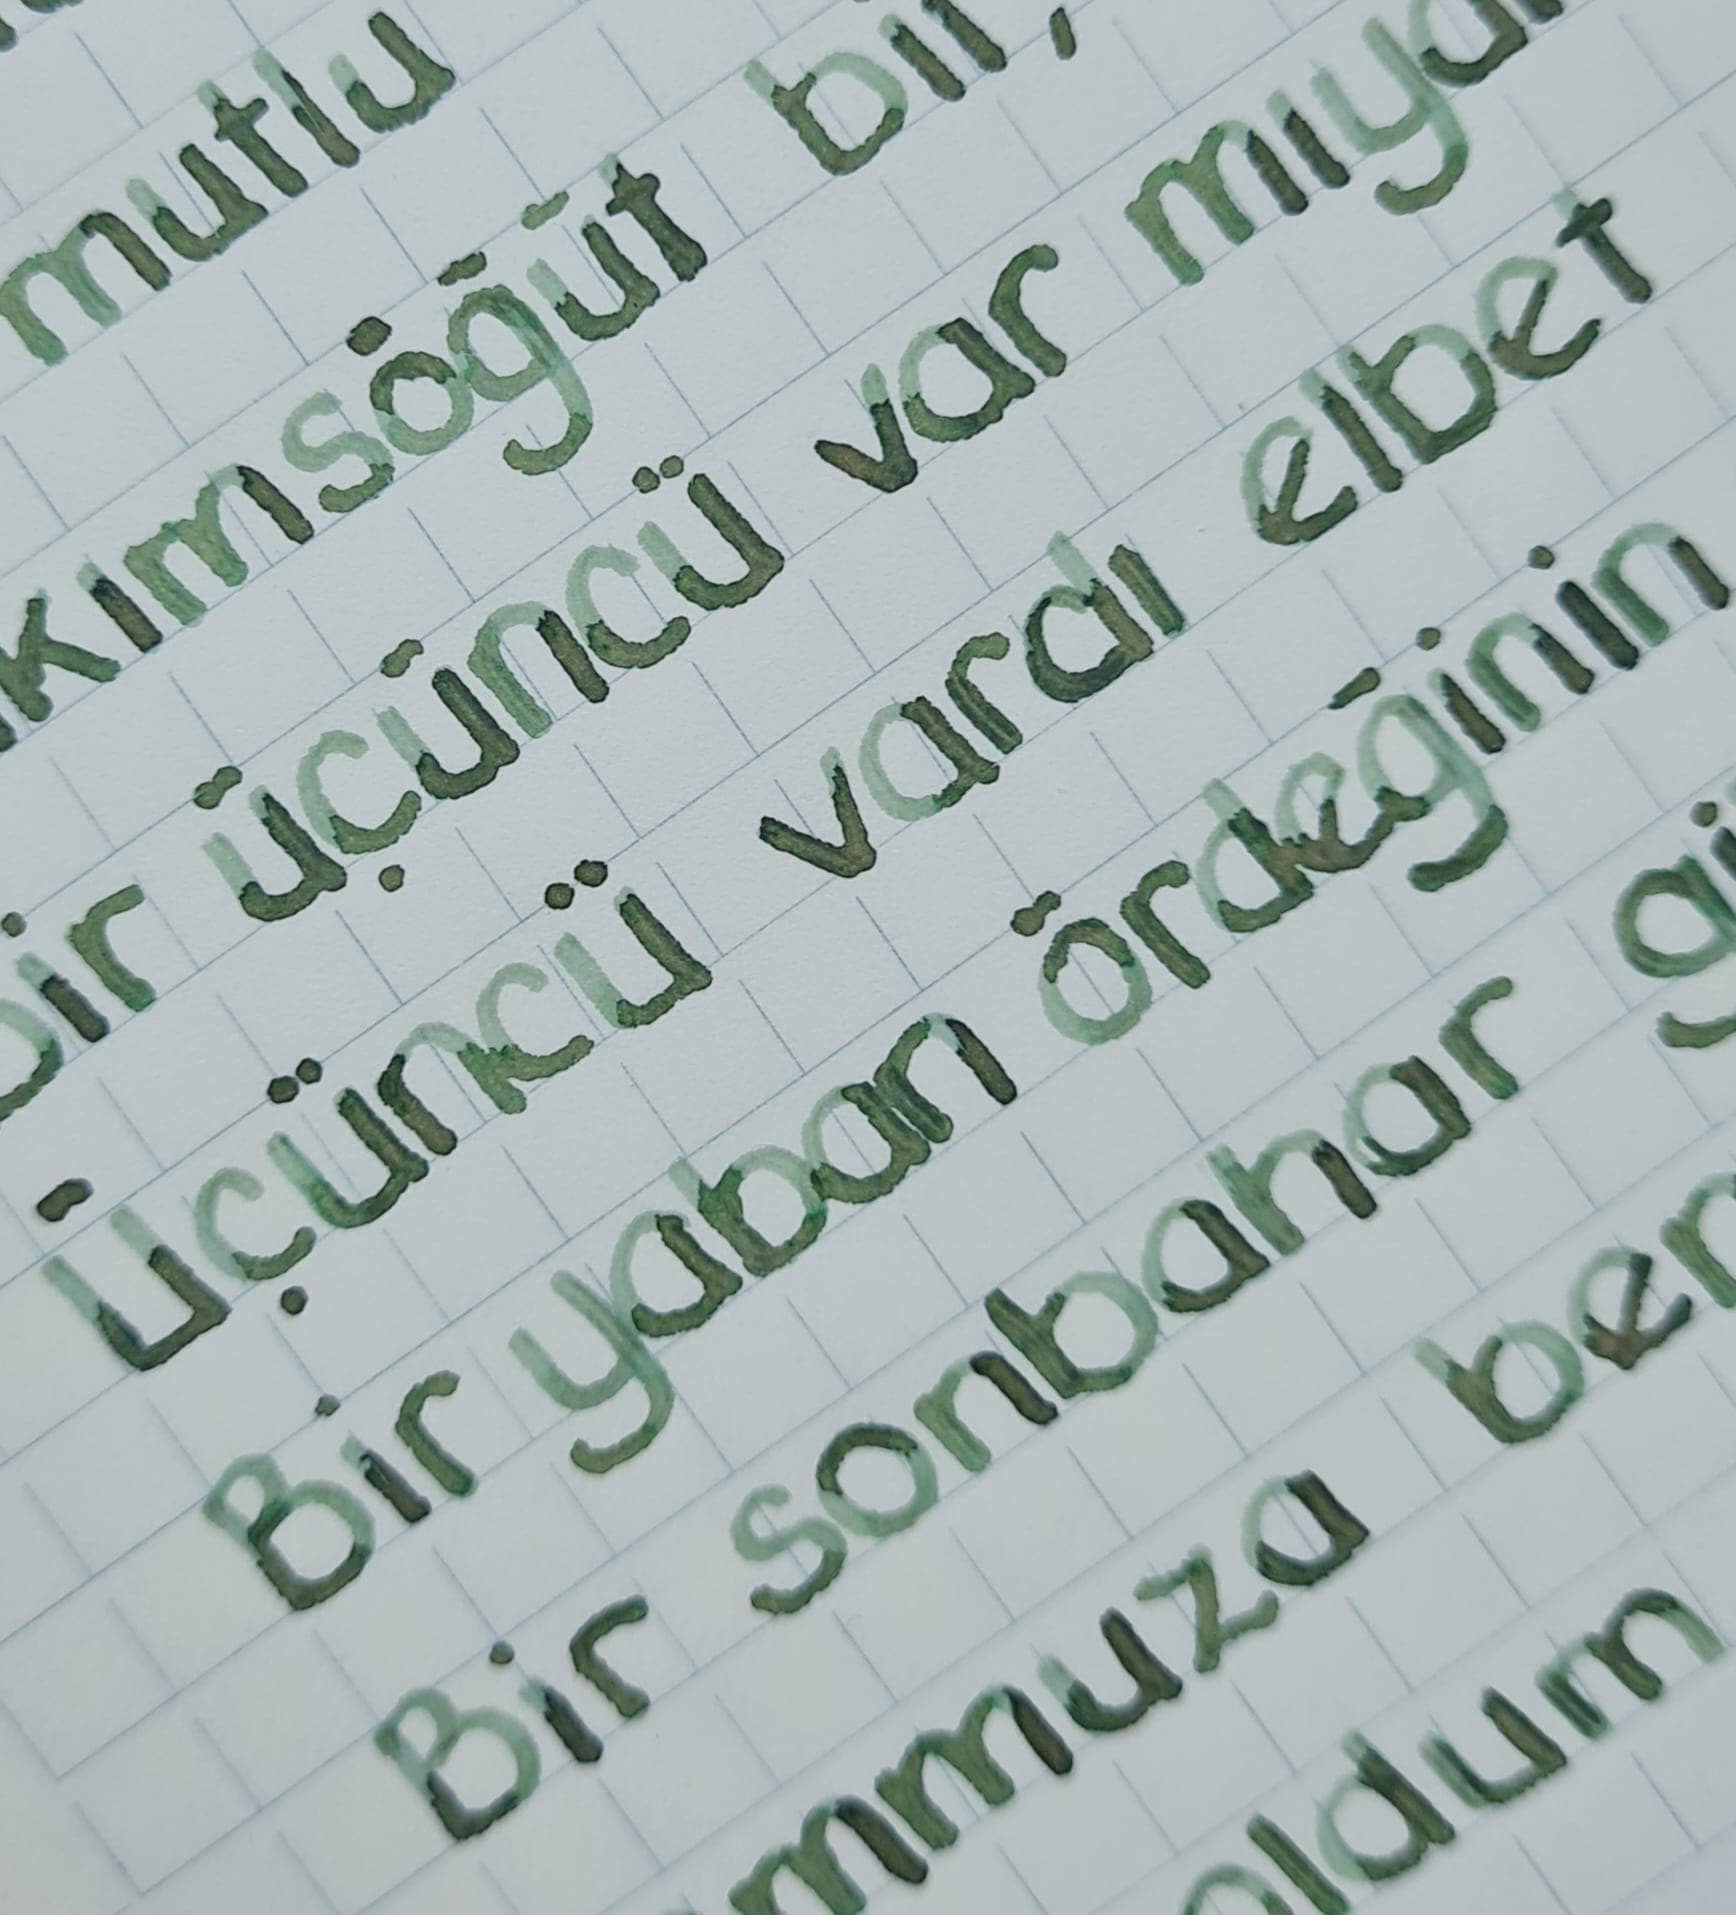 mutlu
kımsöğüt bil,
bir üçüncü var mıya
Üçüncü vardı elbet
Bir yaban ördeğinin
Bir sonbahar
mmuza ben
oldum